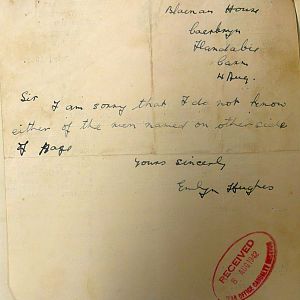 Blaenau House
Caerbryn
Llandabie
Carm
4 Aug.
Sir I am sorry that I do not know
either of the men named on other side
of page
Yours sincerely
Emlyn Hughes
RECEIVED
8 AUG 1942
WAR OFFICE CASUALTY BRANCH